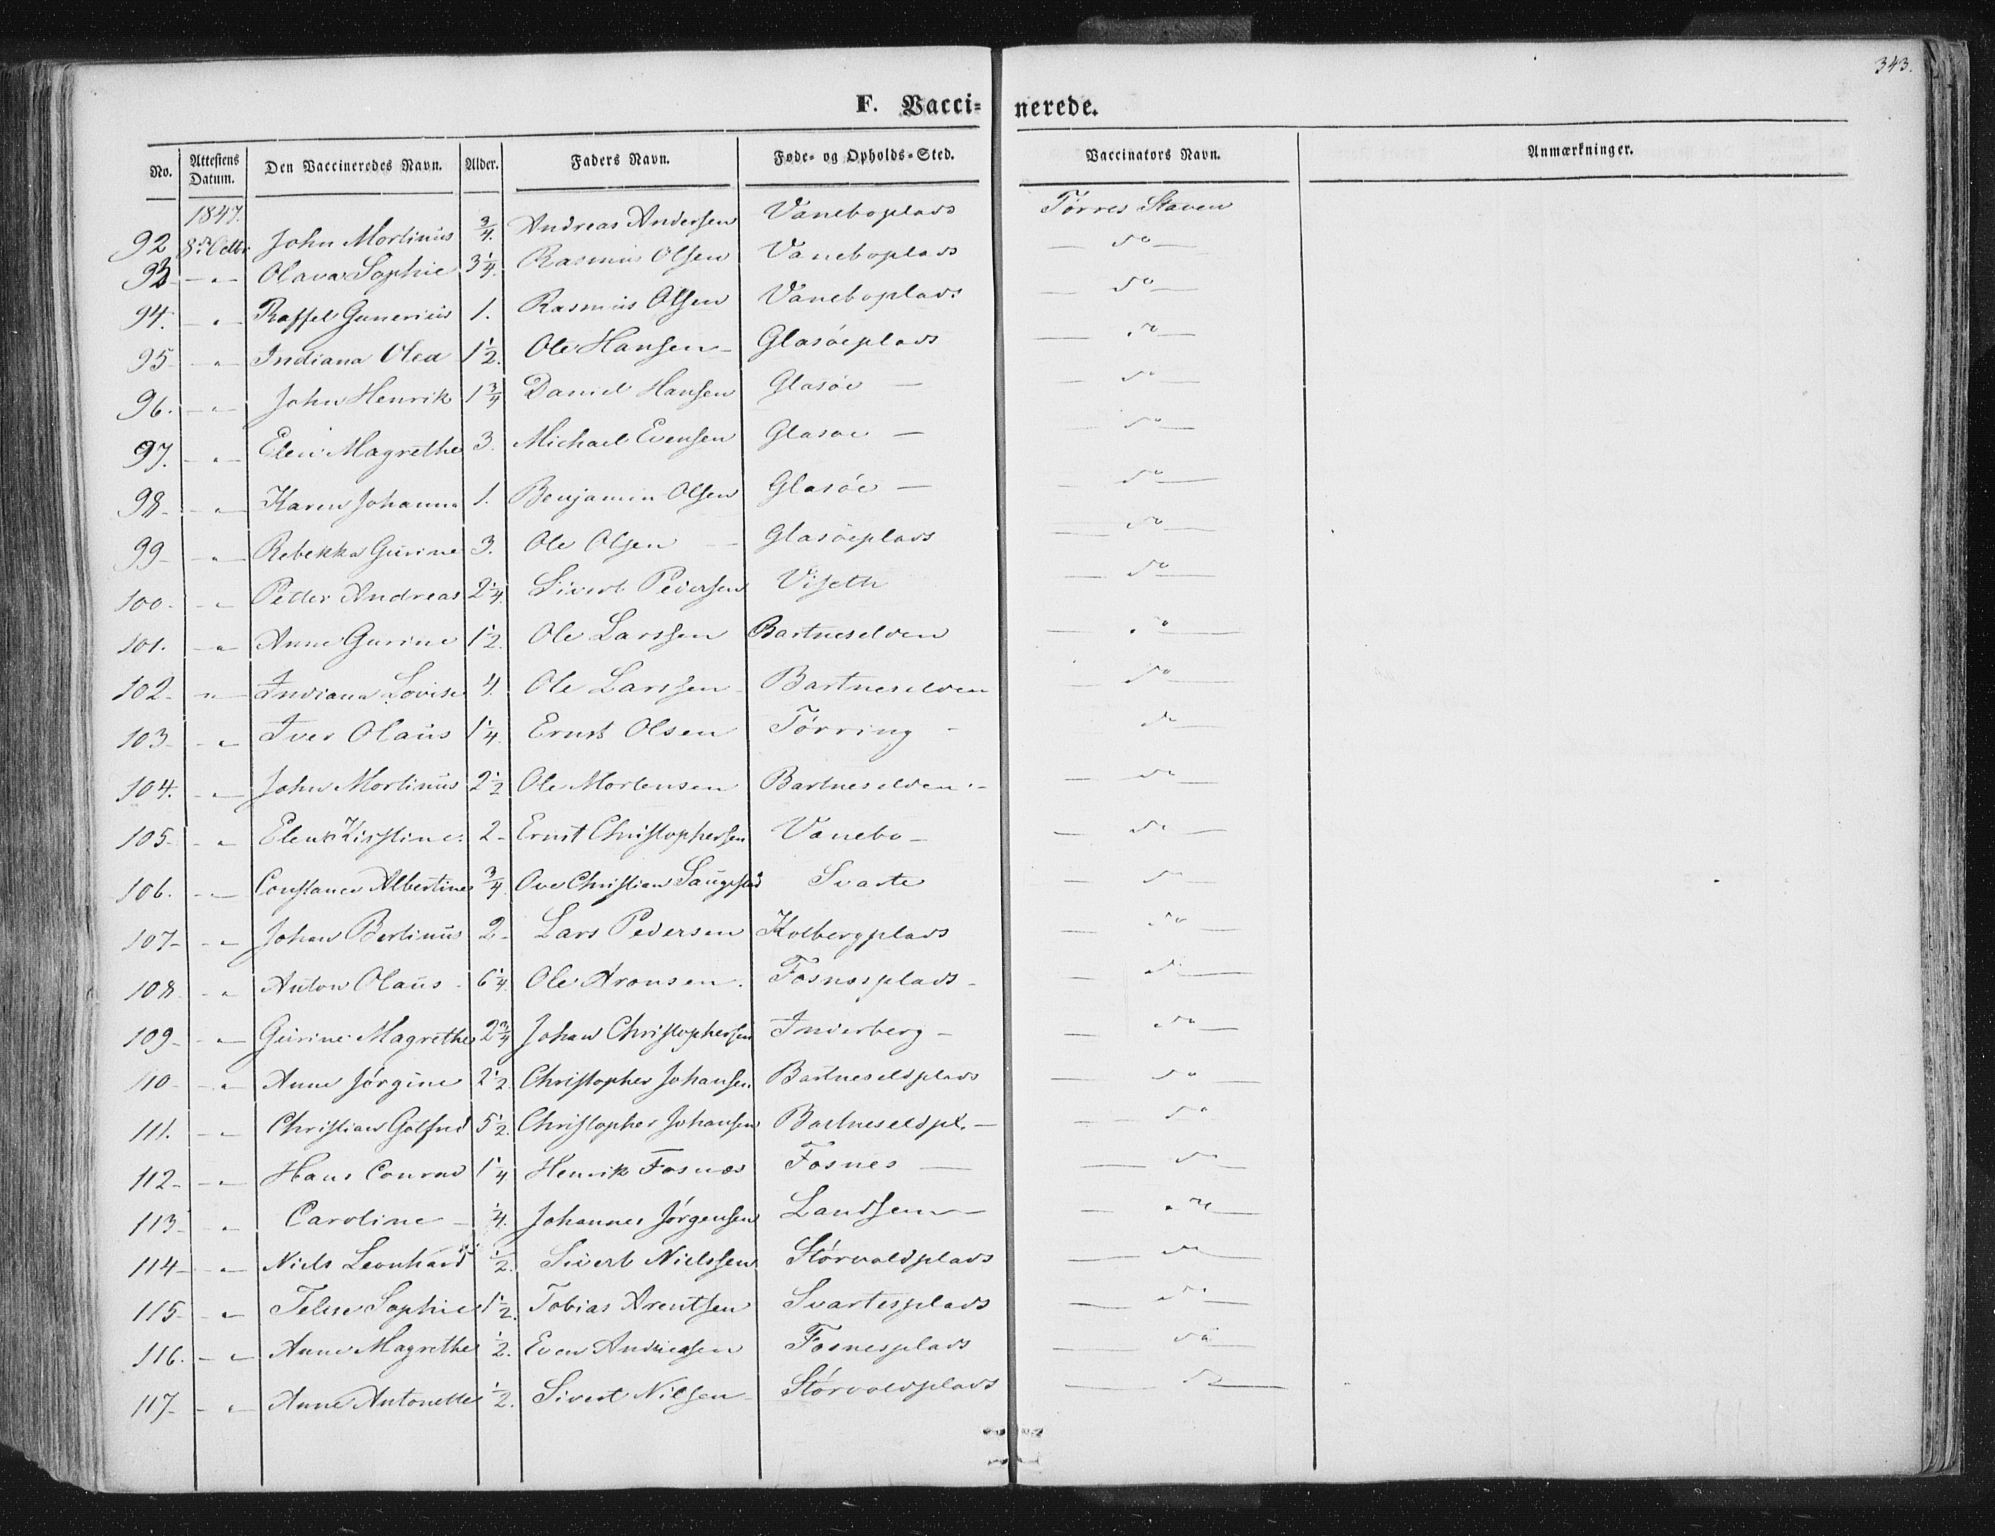 343.
F. Vaccinerede.
No. Attestens Datum. Den Vaccineredes Navn. Alder. Faders Navn. Føde- og Opholds-Sted. Vaccinators Navn. Anmærkninger.
1847.
92 8de Octbr John Mortinus 3/4. Andreas Andersen Vaneboplads Tørres Staven
93 — " — Olava Sophie 3 1/4. Rasmus Olsen Vaneboplads — do —
94. — " — Raffel Gunerius 1. Rasmus Olsen Vaneboplads — do —
95 — " — Indiana Olea 1 1/2. Ole Hansen — Glasøeplads — do —
96. — " — John Henrik 1 3/4 Daniel Hansen Glasøe — — do —
97. — " — Elen Magrethe 3. Michael Evensen Glasøe — — do —
98. — " — Karen Johanna 1. Benjamin Olsen Glasøe — — do —
99 — " — Rebekka Gurine 3. Ole Olsen — Glasøeplads — do —
100. — " Petter Andreas 2 1/4. Sivert Pedersen Viseth — do —
101. — " — Anne Gurine 1 1/2. Ole Larssen Bartneselven — do —
102 — " — Indiana Lovise 4. Ole Larssen Bartneselven — do —
103 — " — Iver Olaus 1 1/4. Ernst Olsen Tørring — — do —
104. — " — John Mortinus 2 1/2 Ole Mortensen Bartneselven — do —
105 — " — Elen Kirstine 2 — Ernst Christophersen Vanebo — — do —
106. — " — Constance Albertine 3/4. Ove Christian Saugestad Svarte — do —
107 — " — Johan Bertinus 2 — Lars Pedersen Kolbergplads — do —
108 — " Anton Olaus 6 1/4. Ole Aronsen Fosnesplads — do —
109 — " — Gurine Magrethe 2 3/4 Johan Christophersen Inderberg — — do —
110 — " — Anne Jørgine 2 1/2. Christopher Johansen Bartneselvplads — do —
111. — " — Christian Gotfred 5 1/2. Christopher Johansen Bartneselvpl. — — do —
112 — " — Hans Conrad 1 1/4 Henrik Fosnes Fosnes — — do —
113 — " Caroline — 1/4. Johannes Jørgensen Landsem — — do —
114 — " — Niels Leonhard 1/2. Sivert Nielssen Størvoldplads — do —
115 — " — Sophie 1 1/2. Tobias Arentsen Svartesplads — do —
116. — " — Anne Magrethe 1/2. Even Andreasen Fosnesplads — do —
117 — " — Anne Antonette 1/2. Sivert Nilsen — Størvoldplads — do —